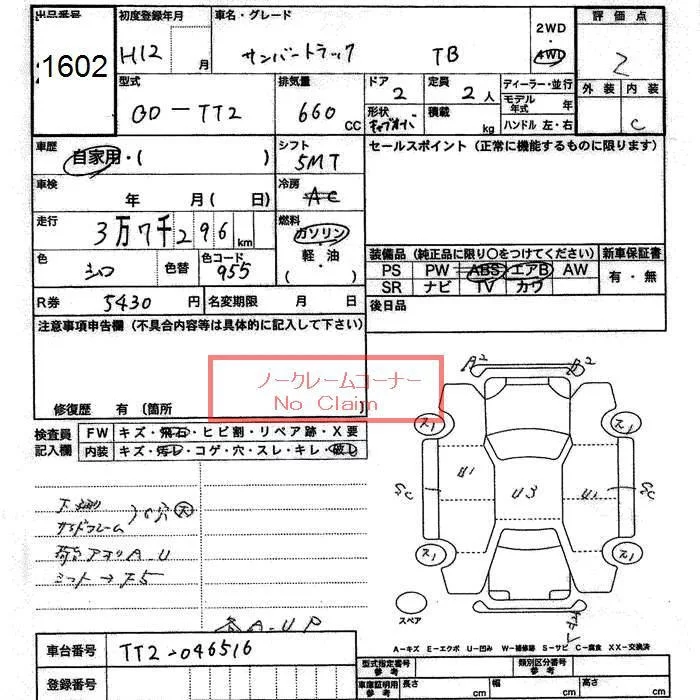 出品番号
1602
初度登録年月
H12 月
車名・グレード
サンバートラック TB
2WD
・
4WD
評価点
2
外装 内装
C
型式
GD-TT2
排気量
660 CC
ドア
2
定員
2人
形状
キャブオーバ
積載
kg
ディーラー・並行
モデル年式 年
ハンドル 左・右
車歴
自家用・( )
シフト
5MT
車検
年 月( 日)
冷房
AC
走行
3万7千296km
燃料
ガソリン
・
軽・油
( )
色
シロ
色替
色コード
955
R券 5430円
名変期限 月 日
セールスポイント(正常に機能するものに限ります)
装備品(純正品に限り○をつけてください)
新車保証書
PS PW ABS エアB AW
有・無
SR ナビ TV カワ
後日品
注意事項申告欄(不具合内容等は具体的に記入して下さい)
ノークレームコーナー
No Claim
修復歴 有〔箇所 〕
検査員
記入欄
FW キズ・飛石・ヒビ割・リペア跡・X要
内装 キズ・汚レ・コゲ・穴・スレ・キレ・破レ
サイドフレーム
荷台アオリA-U
シート→
A2 A2
ス1 ス1
SC U1 U3 U2 SC
ス1 ス1
スペア
車台番号 TT2-046516
登録番号
A-キズ E-エクボ U-凹み W-補修跡 S-サビ C-腐食 XX-交換済
型式指定番号
参考
類別区分番号
参考
車庫証明用
参考
長さ cm
幅 cm
高さ cm